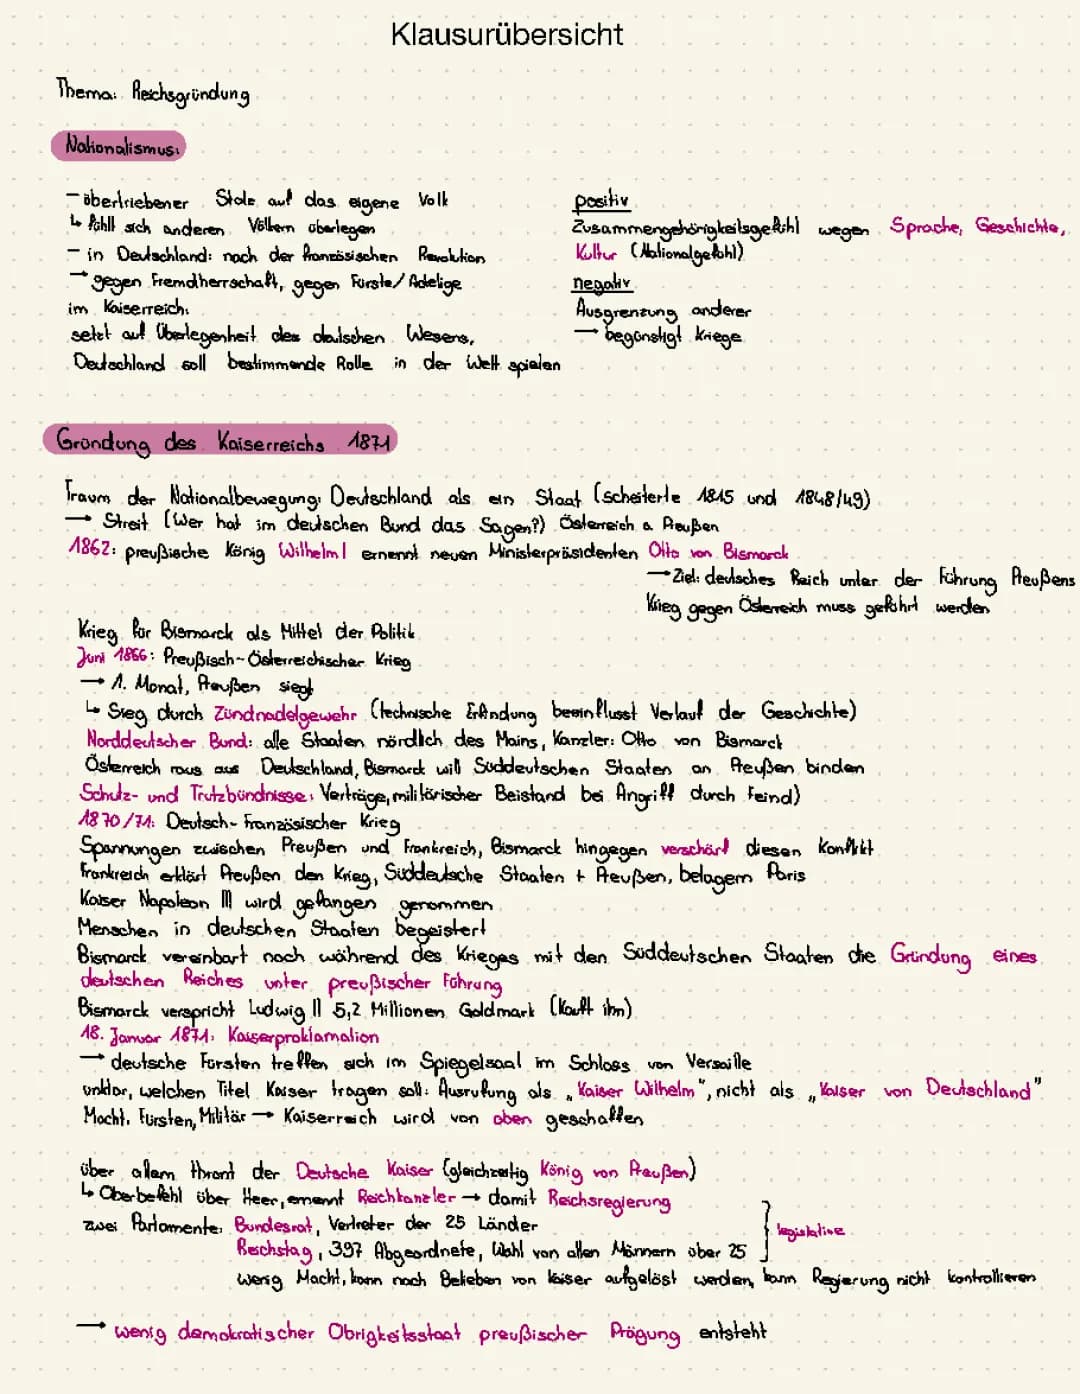 Klausurübersicht
Thema: Reichsgründung
Nationalismus:
- übertriebener Stolz auf das eigene Volk
↳ fühlt sich anderen Völkern überlegen
- in Deutschland: nach der französischen Revolution
→ gegen Fremdherrschaft, gegen Fürste/Adelige
im Kaiserreich:
setzt auf Überlegenheit des deutschen Wesens,
Deutschland soll bestimmende Rolle in der Welt spielen
positiv
Zusammengehörigkeitsgefühl wegen Sprache, Geschichte,
Kultur (Nationalgefühl)
negativ
Ausgrenzung anderer
→ begünstigt Kriege
Gründung des Kaiserreichs 1871
Traum der Nationalbewegung: Deutschland als ein Staat (scheiterte 1815 und 1848/49)
→ Streit (Wer hat im deutschen Bund das Sagen?) Österreich & Preußen
1862: preußische König Wilhelm I ernennt neuen Ministerpräsidenten Otto von Bismarck
→ Ziel: deutsches Reich unter der Führung Preußens
Krieg gegen Österreich muss geführt werden
Krieg für Bismarck als Mittel der Politik
Juni 1866: Preußisch-Österreichischer Krieg
→ 1. Monat, Preußen siegt
↳ Sieg durch Zündnadelgewehr (technische Erfindung beeinflusst Verlauf der Geschichte)
Norddeutscher Bund: alle Staaten nördlich des Mains, Kanzler: Otto von Bismarck
Österreich raus aus Deutschland, Bismarck will Süddeutschen Staaten an Preußen binden
Schutz- und Trutzbündnisse: Verträge, militärischer Beistand bei Angriff durch Feind)
1870/71: Deutsch-Französischer Krieg
Spannungen zwischen Preußen und Frankreich, Bismarck hingegen verschärft diesen Konflikt
Frankreich erklärt Preußen den Krieg, Süddeutsche Staaten + Preußen, belagern Paris
Kaiser Napoleon III wird gefangen genommen
Menschen in deutschen Staaten begeistert
Bismarck vereinbart noch während des Krieges mit den Süddeutschen Staaten die Gründung eines
deutschen Reiches unter preußischer Führung
Bismarck verspricht Ludwig II 5,2 Millionen Goldmark (Kauft ihn)
18. Januar 1871: Kaiserproklamation
→ deutsche Fürsten treffen sich im Spiegelsaal im Schloss von Versaille
unklar, welchen Titel Kaiser tragen soll: Ausrufung als „Kaiser Wilhelm", nicht als „Kaiser von Deutschland"
Macht: Fürsten, Militär → Kaiserreich wird von oben geschaffen
über allem thront der Deutsche Kaiser (gleichzeitig König von Preußen)
↳ Oberbefehl über Heer, ernennt Reichkanzler → damit Reichsregierung
zwei Parlamente: Bundesrat, Vertreter der 25 Länder
Reichstag, 397 Abgeordnete, Wahl von allen Männern über 25
legislative
wenig Macht, kann nach Belieben von Kaiser aufgelöst werden, kann Regierung nicht kontrollieren
→ wenig demokratischer Obrigkeitsstaat preußischer Prägung entsteht